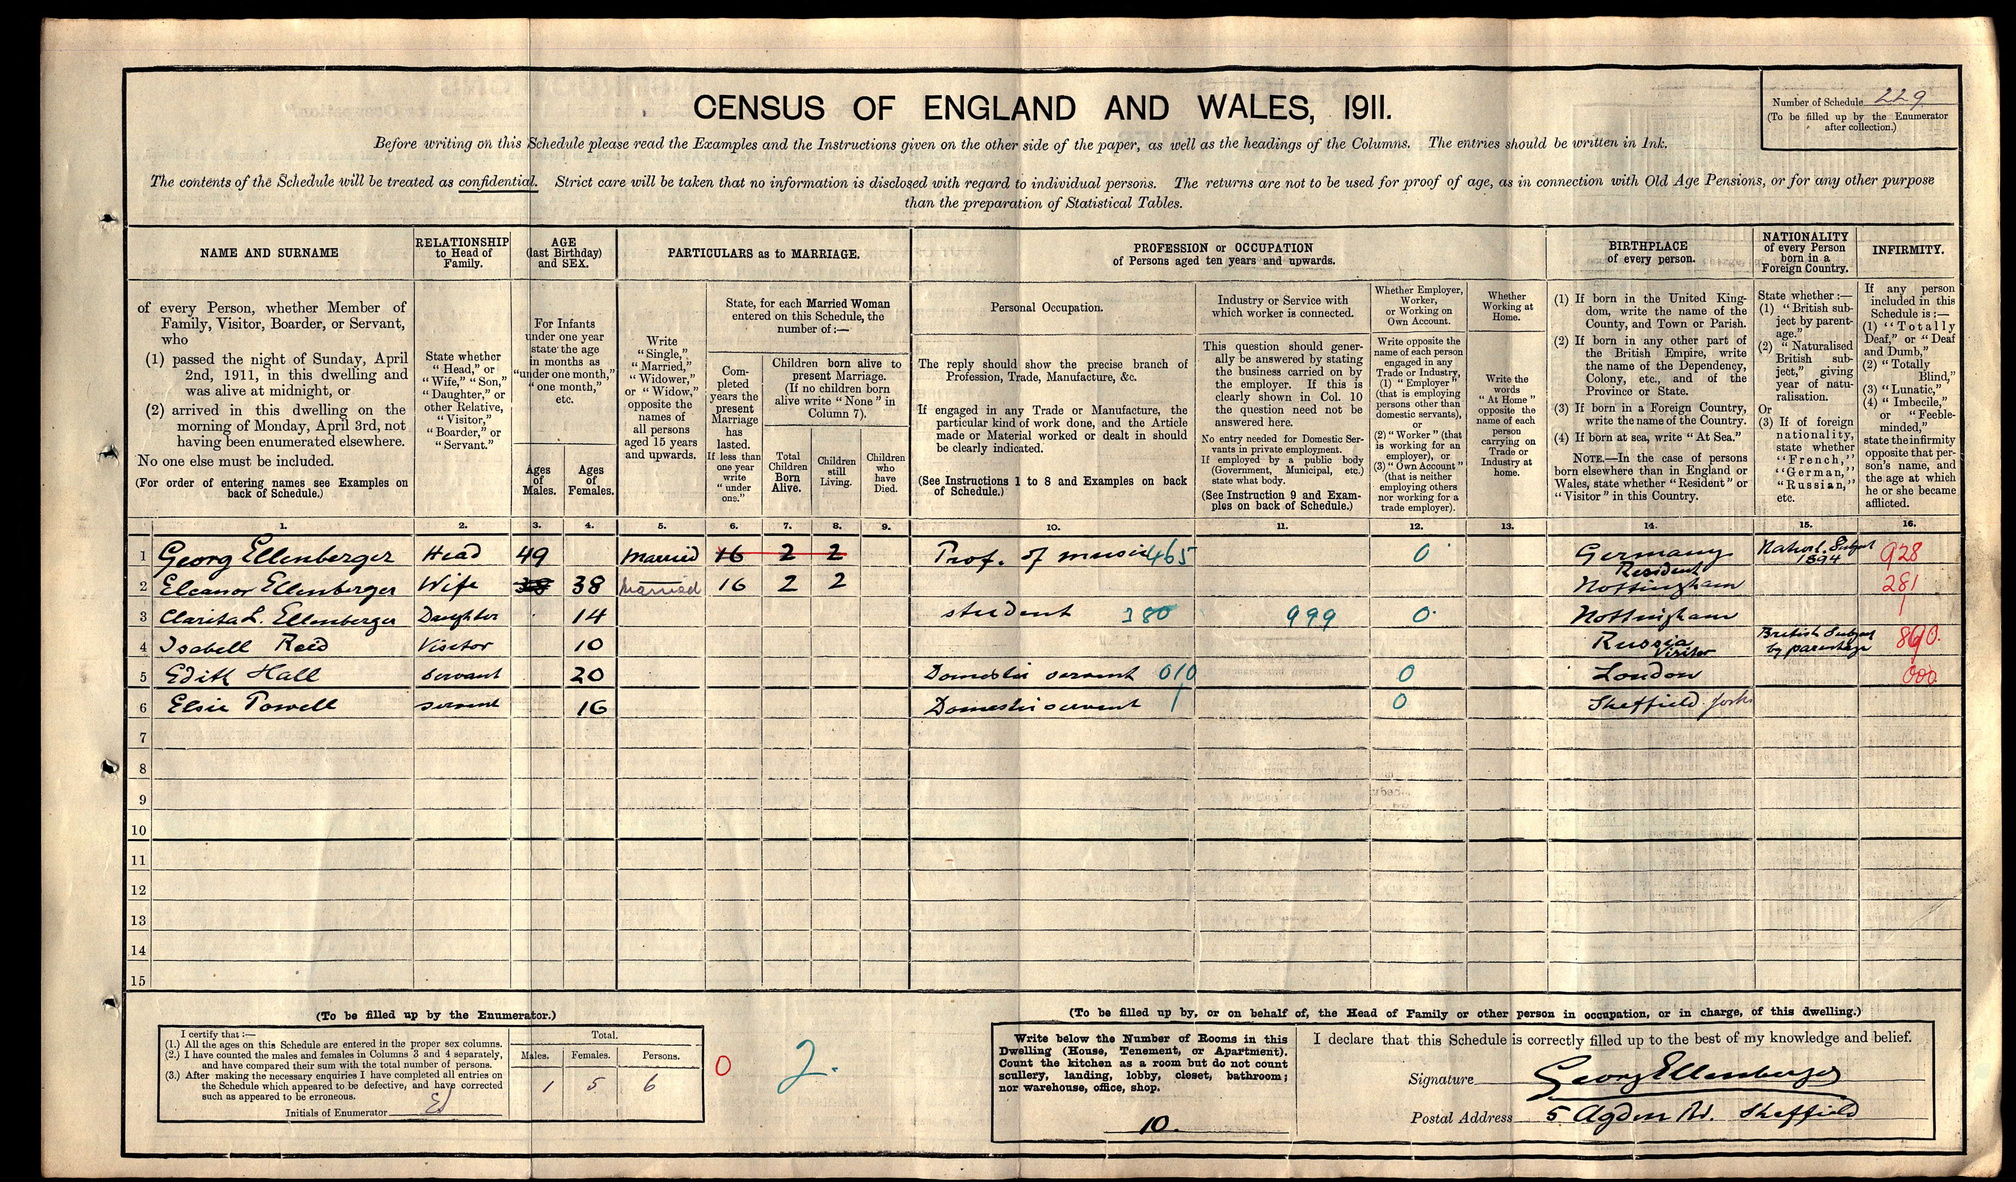 CENSUS OF ENGLAND AND WALES, 1911.
Number of Schedule 229
(To be filled up by the Enumerator
after collection.)
Before writing on this Schedule please read the Examples and the Instructions given on the other side of the paper, as well as the headings of the Columns. The entries should be written in Ink.
The contents of the Schedule will be treated as confidential. Strict care will be taken that no information is disclosed with regard to individual persons. The returns are not to be used for proof of age, as in connection with Old Age Pensions, or for any other purpose
than the preparation of Statistical Tables.
NAME AND SURNAME
of every Person, whether Member of
Family, Visitor, Boarder, or Servant,
who
(1) passed the night of Sunday, April
2nd, 1911, in this dwelling and
was alive at midnight, or
(2) arrived in this dwelling on the
morning of Monday, April 3rd, not
having been enumerated elsewhere.
No one else must be included.
(For order of entering names see Examples on
back of Schedule.)
RELATIONSHIP
to Head of
Family.
State whether
"Head," or
"Wife," "Son,"
"Daughter," or
other Relative,
"Visitor,"
"Boarder," or
"Servant."
AGE
(last Birthday)
and SEX.
For Infants
under one year
state the age
in months as
"under one month,"
"one month,"
etc.
Ages
of
Males.
Ages
of
Females.
PARTICULARS as to MARRIAGE.
Write
"Single,"
"Married,"
"Widower,"
or "Widow,"
opposite the
names of
all persons
aged 15 years
and upwards.
State, for each Married Woman
entered on this Schedule, the
number of:—
Com-
pleted
years the
present
Marriage
has
lasted.
If less than
one year
write
"under
one."
Children born alive to
present Marriage.
(If no children born
alive write "None" in
Column 7).
Total
Children
Born
Alive.
Children
still
Living.
Children
who
have
Died.
PROFESSION or OCCUPATION
of Persons aged ten years and upwards.
Personal Occupation.
The reply should show the precise branch of
Profession, Trade, Manufacture, &c.
If engaged in any Trade or Manufacture, the
particular kind of work done, and the Article
made or Material worked or dealt in should
be clearly indicated.
(See Instructions 1 to 8 and Examples on back
of Schedule.)
Industry or Service with
which worker is connected.
This question should gener-
ally be answered by stating
the business carried on by
the employer. If this is
clearly shown in Col. 10
the question need not be
answered here.
No entry needed for Domestic Ser-
vants in private employment.
If employed by a public body
(Government, Municipal, etc.)
state what body.
(See Instruction 9 and Exam-
ples on back of Schedule.)
Whether Employer,
Worker,
or Working on
Own Account.
Write opposite the
name of each person
engaged in any
Trade or Industry,
(1) "Employer"
(that is employing
persons other than
domestic servants),
or
(2) "Worker" (that
is working for an
employer), or
(3) "Own Account"
(that is neither
employing others
nor working for a
trade employer).
Whether
Working at
Home.
Write the
words
"At Home"
opposite the
name of each
person
carrying on
Trade or
Industry at
home.
BIRTHPLACE
of every person.
(1) If born in the United King-
dom, write the name of the
County, and Town or Parish.
(2) If born in any other part of
the British Empire, write
the name of the Dependency,
Colony, etc., and of the
Province or State.
(3) If born in a Foreign Country,
write the name of the Country.
(4) If born at sea, write "At Sea."
NOTE.—In the case of persons
born elsewhere than in England or
Wales, state whether "Resident" or
"Visitor" in this Country.
NATIONALITY
of every Person
born in a
Foreign Country.
State whether:—
(1) "British sub-
ject by parent-
age."
(2) "Naturalised
British sub-
ject," giving
year of natu-
ralisation.
Or
(3) If of foreign
nationality,
state whether
"French,"
"German,"
"Russian,"
etc.
INFIRMITY.
If any person
included in this
Schedule is:—
(1) "Totally
Deaf," or "Deaf
and Dumb,"
(2) "Totally
Blind,"
(3) "Lunatic,"
(4) "Imbecile,"
or "Feeble-
minded,"
state the infirmity
opposite that per-
son's name, and
the age at which
he or she became
afflicted.
1. 2. 3. 4. 5. 6. 7. 8. 9. 10. 11. 12. 13. 14. 15. 16.
1 Georg Ellenberger Head 49 Married 16 2 2 Prof. of music 465 0 Germany Resident Nat. Subject 1894 928
2 Eleanor Ellenberger Wife 38 38 Married 16 2 2 Nottingham 281
3 Clarita L. Ellenberger Daughter 14 student 380 999 0 Nottingham
4 Isabell Reid Visitor 10 Russia Visitor British Subject by parentage 860.
5 Edith Hall Servant 20 Domestic servant 010 0 London 000
6 Elsie Powell servant 16 Domestic servant 0 Sheffield Yorks
7
8
9
10
11
12
13
14
15
(To be filled up by the Enumerator.)
I certify that:—
(1.) All the ages on this Schedule are entered in the proper sex columns.
(2.) I have counted the males and females in Columns 3 and 4 separately,
and have compared their sum with the total number of persons.
(3.) After making the necessary enquiries I have completed all entries on
the Schedule which appeared to be defective, and have corrected
such as appeared to be erroneous.
Initials of Enumerator
Total.
Males. Females. Persons.
1 5 6
0 2.
(To be filled up by, or on behalf of, the Head of Family or other person in occupation, or in charge, of this dwelling.)
Write below the Number of Rooms in this
Dwelling (House, Tenement, or Apartment).
Count the kitchen as a room but do not count
scullery, landing, lobby, closet, bathroom;
nor warehouse, office, shop.
10.
I declare that this Schedule is correctly filled up to the best of my knowledge and belief.
Signature Georg Ellenberger
Postal Address 5 Agden Rd. Sheffield